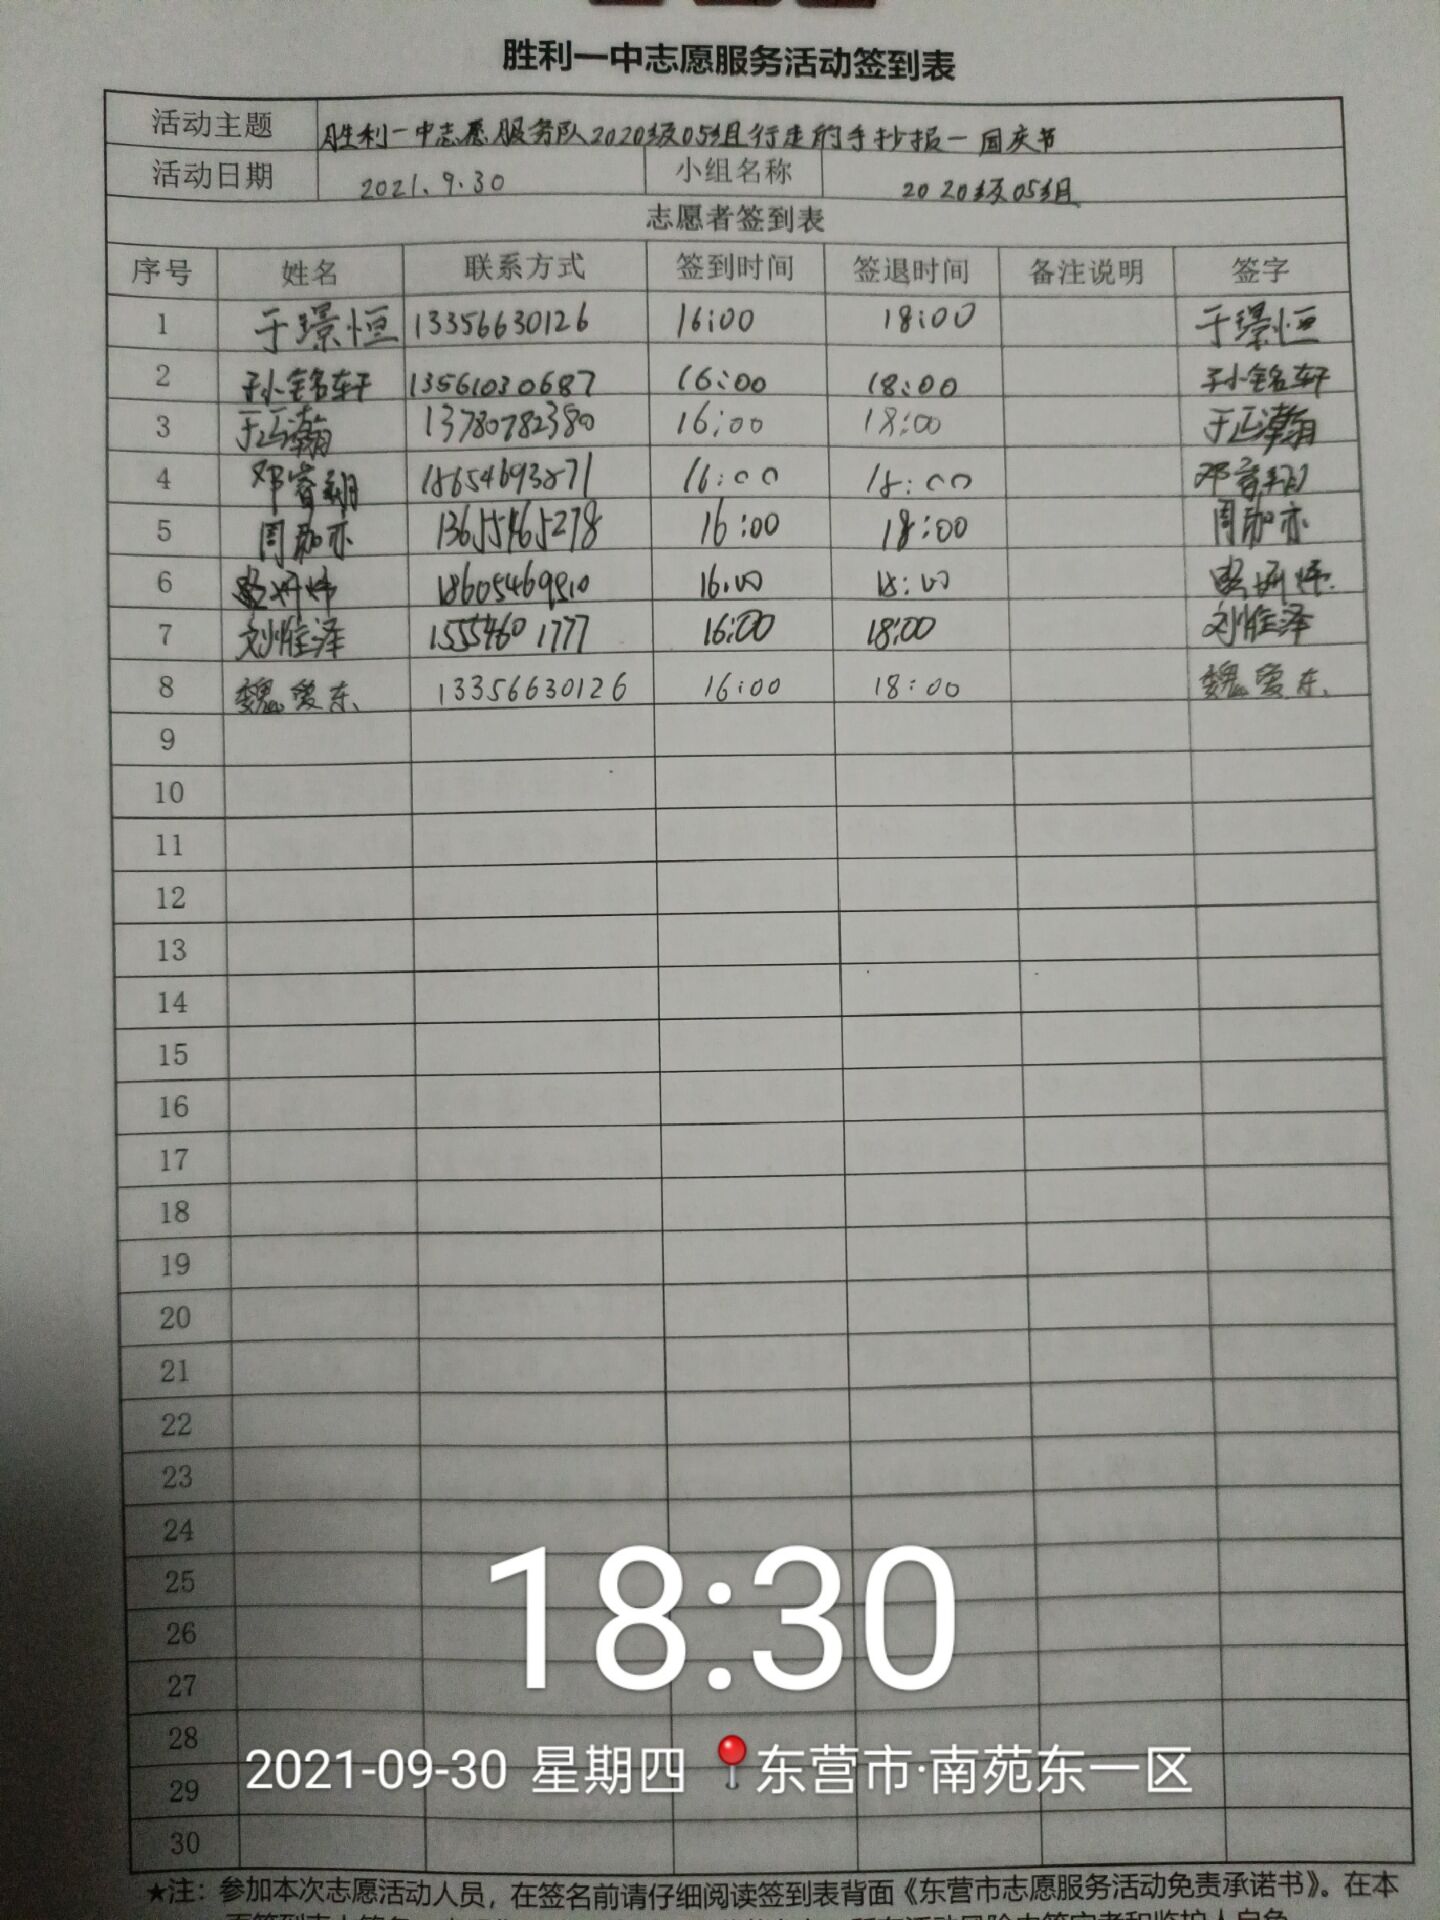 胜利一中志愿服务活动签到表
活动主题 胜利一中志愿服务队2020级05组行走的手抄报一国庆节
活动日期 2021.9.30 小组名称 2020级05组
志愿者签到表
序号 姓名 联系方式 签到时间 签退时间 备注说明 签字
1 于璟恒 13356630126 16:00 18:00 于璟恒
2 孙铭轩 13561030687 16:00 18:00 孙铭轩
3 于正瀚 13780782380 16:00 18:00 于正瀚
4 邓睿翔 18654693871 16:00 18:00 邓睿翔
5 周勐亦 13655465278 16:00 18:00 周勐亦
6 18605469510 16:00 18:00
7 刘惟泽 15554601777 16:00 18:00 刘惟泽
8 魏爱东 13356630126 16:00 18:00 魏爱东
9
10
11
12
13
14
15
16
17
18
19
20
21
22
23
24
25
26
27
28
29
30
18:30
2021-09-30 星期四 东营市·南苑东一区
★注：参加本次志愿活动人员，在签名前请仔细阅读签到表背面《东营市志愿服务活动免责承诺书》。在本